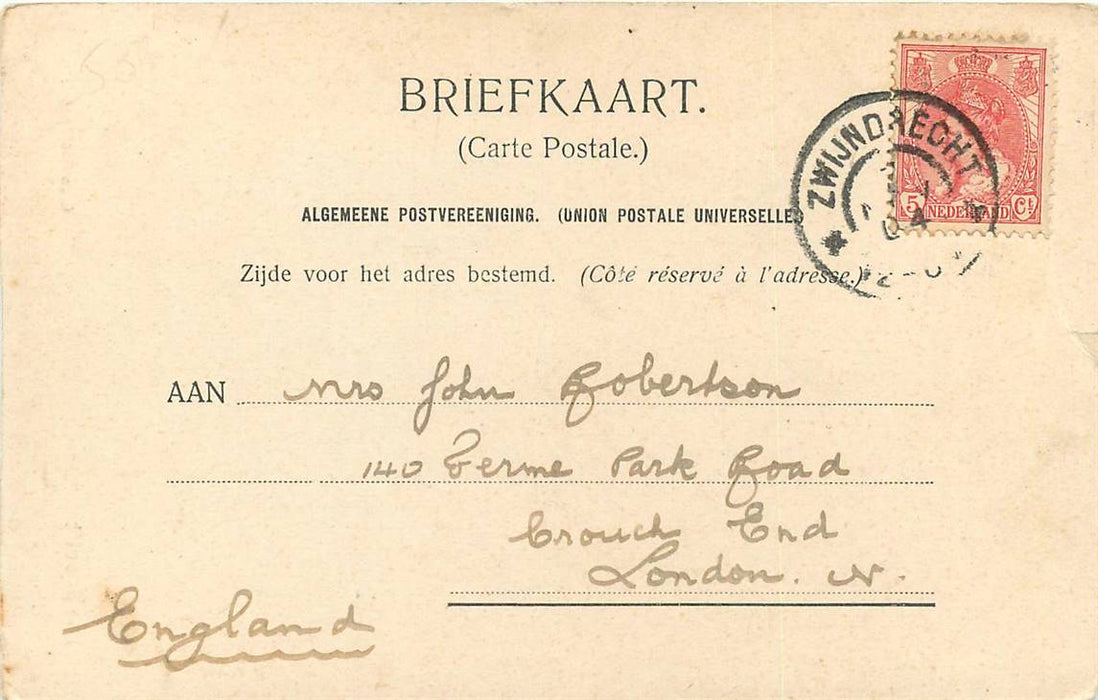 BRIEFKAART.
(Carte Postale.)
ALGEMEENE POSTVEREENIGING. (UNION POSTALE UNIVERSELLE)
Zijde voor het adres bestemd. (Côté réservé à l'adresse.)
ZWIJNDRECHT
04
5 NEDERLAND Ct
AAN Mrs John Robertson
140 Ferme Park Road
Crouch End
London. N.
England